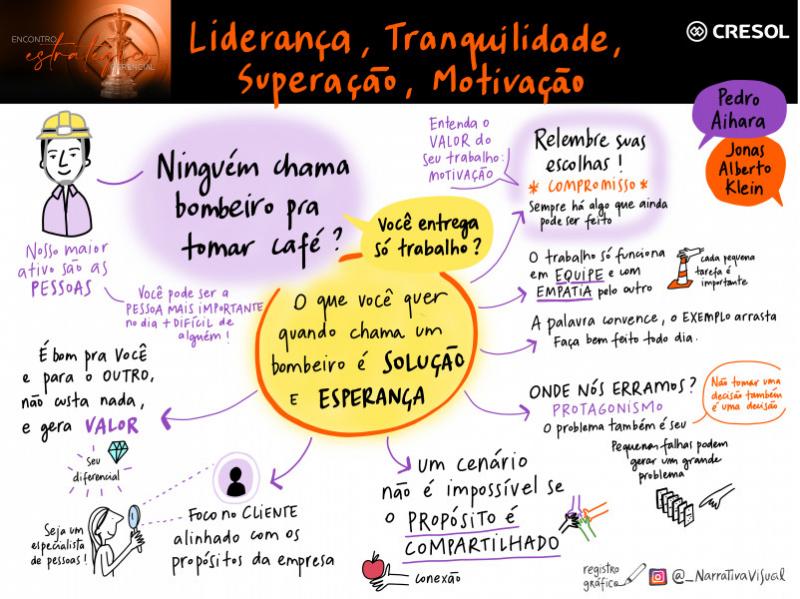 ENCONTRO
estratégico
GERENCIAL
Liderança, Tranquilidade,
Superação, Motivação
CRESOL
Pedro
Aihara
Jonas
Alberto
Klein
Ninguém chama
bombeiro pra
tomar café?
Você entrega
só trabalho?
Entenda o
VALOR do
seu trabalho:
MOTIVAÇÃO
Relembre suas
escolhas!
* COMPROMISSO *
Sempre há algo que ainda
pode ser feito
Nosso maior
ativo são as
PESSOAS
Você pode ser a
PESSOA MAIS IMPORTANTE
no dia + DIFÍCIL de
alguém!
O que você quer
quando chama um
bombeiro é SOLUÇÃO
E ESPERANÇA
O trabalho só funciona
em EQUIPE e com
EMPATIA pelo outro
cada pequena
tarefa é
importante
A palavra convence, o EXEMPLO arrasta
Faça bem feito todo dia.
É bom pra você
e para o OUTRO,
não custa nada,
e gera VALOR
seu
diferencial
ONDE NÓS ERRAMOS?
PROTAGONISMO
O problema também é seu
Não tomar uma
decisão também
é uma decisão
Pequenas falhas podem
gerar um grande
problema
Seja um
especialista
de pessoas!
Foco no CLIENTE
alinhado com os
propósitos da empresa
um cenário
não é impossível se
o PROPÓSITO É
COMPARTILHADO
conexão
registro
gráfico
@_NarrativaVisual